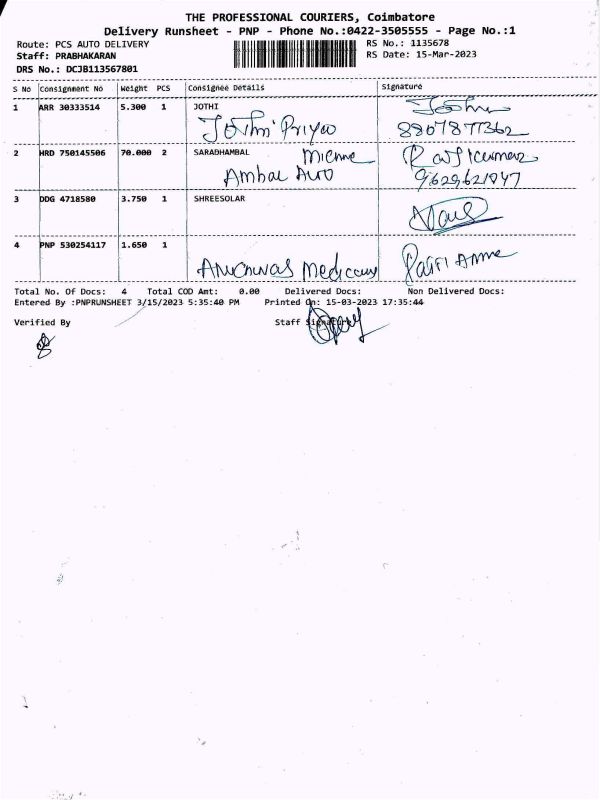 THE PROFESSIONAL COURIERS, Coimbatore
Delivery Runsheet - PNP - Phone No.:0422-3505555 - Page No.:1
Route: PCS AUTO DELIVERY RS No.: 1135678
Staff: PRABHAKARAN RS Date: 15-Mar-2023
DRS No.: DCJB113567801
S No Consignment No Weight PCS Consignee Details Signature
1 ARR 30333514 5.300 1 JOTHI
Jothi Priya 8807877362
2 HRD 750145506 70.000 2 SARADHAMBAL
Ambal Auto
3 DDG 4718580 3.750 1 SHREESOLAR
4 PNP 530254117 1.650 1
Total No. Of Docs: 4 Total COD Amt: 0.00 Delivered Docs: Non Delivered Docs:
Entered By :PNPRUNSHEET 3/15/2023 5:35:40 PM Printed On: 15-03-2023 17:35:44
Verified By Staff Signature